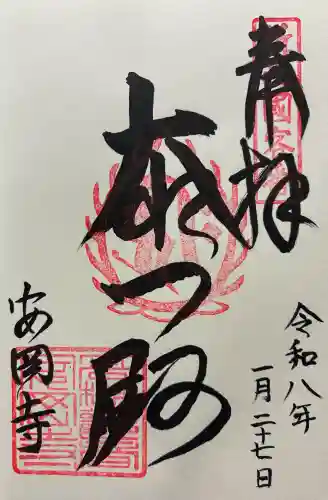 奉拝
大悲殿
令和八年
一月二十七日
安岡寺